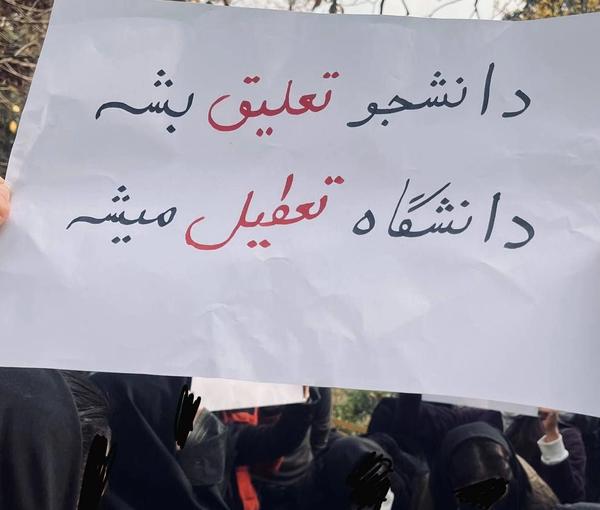 دانشجو تعلیق بشه
دانشگاه تعطیل میشه